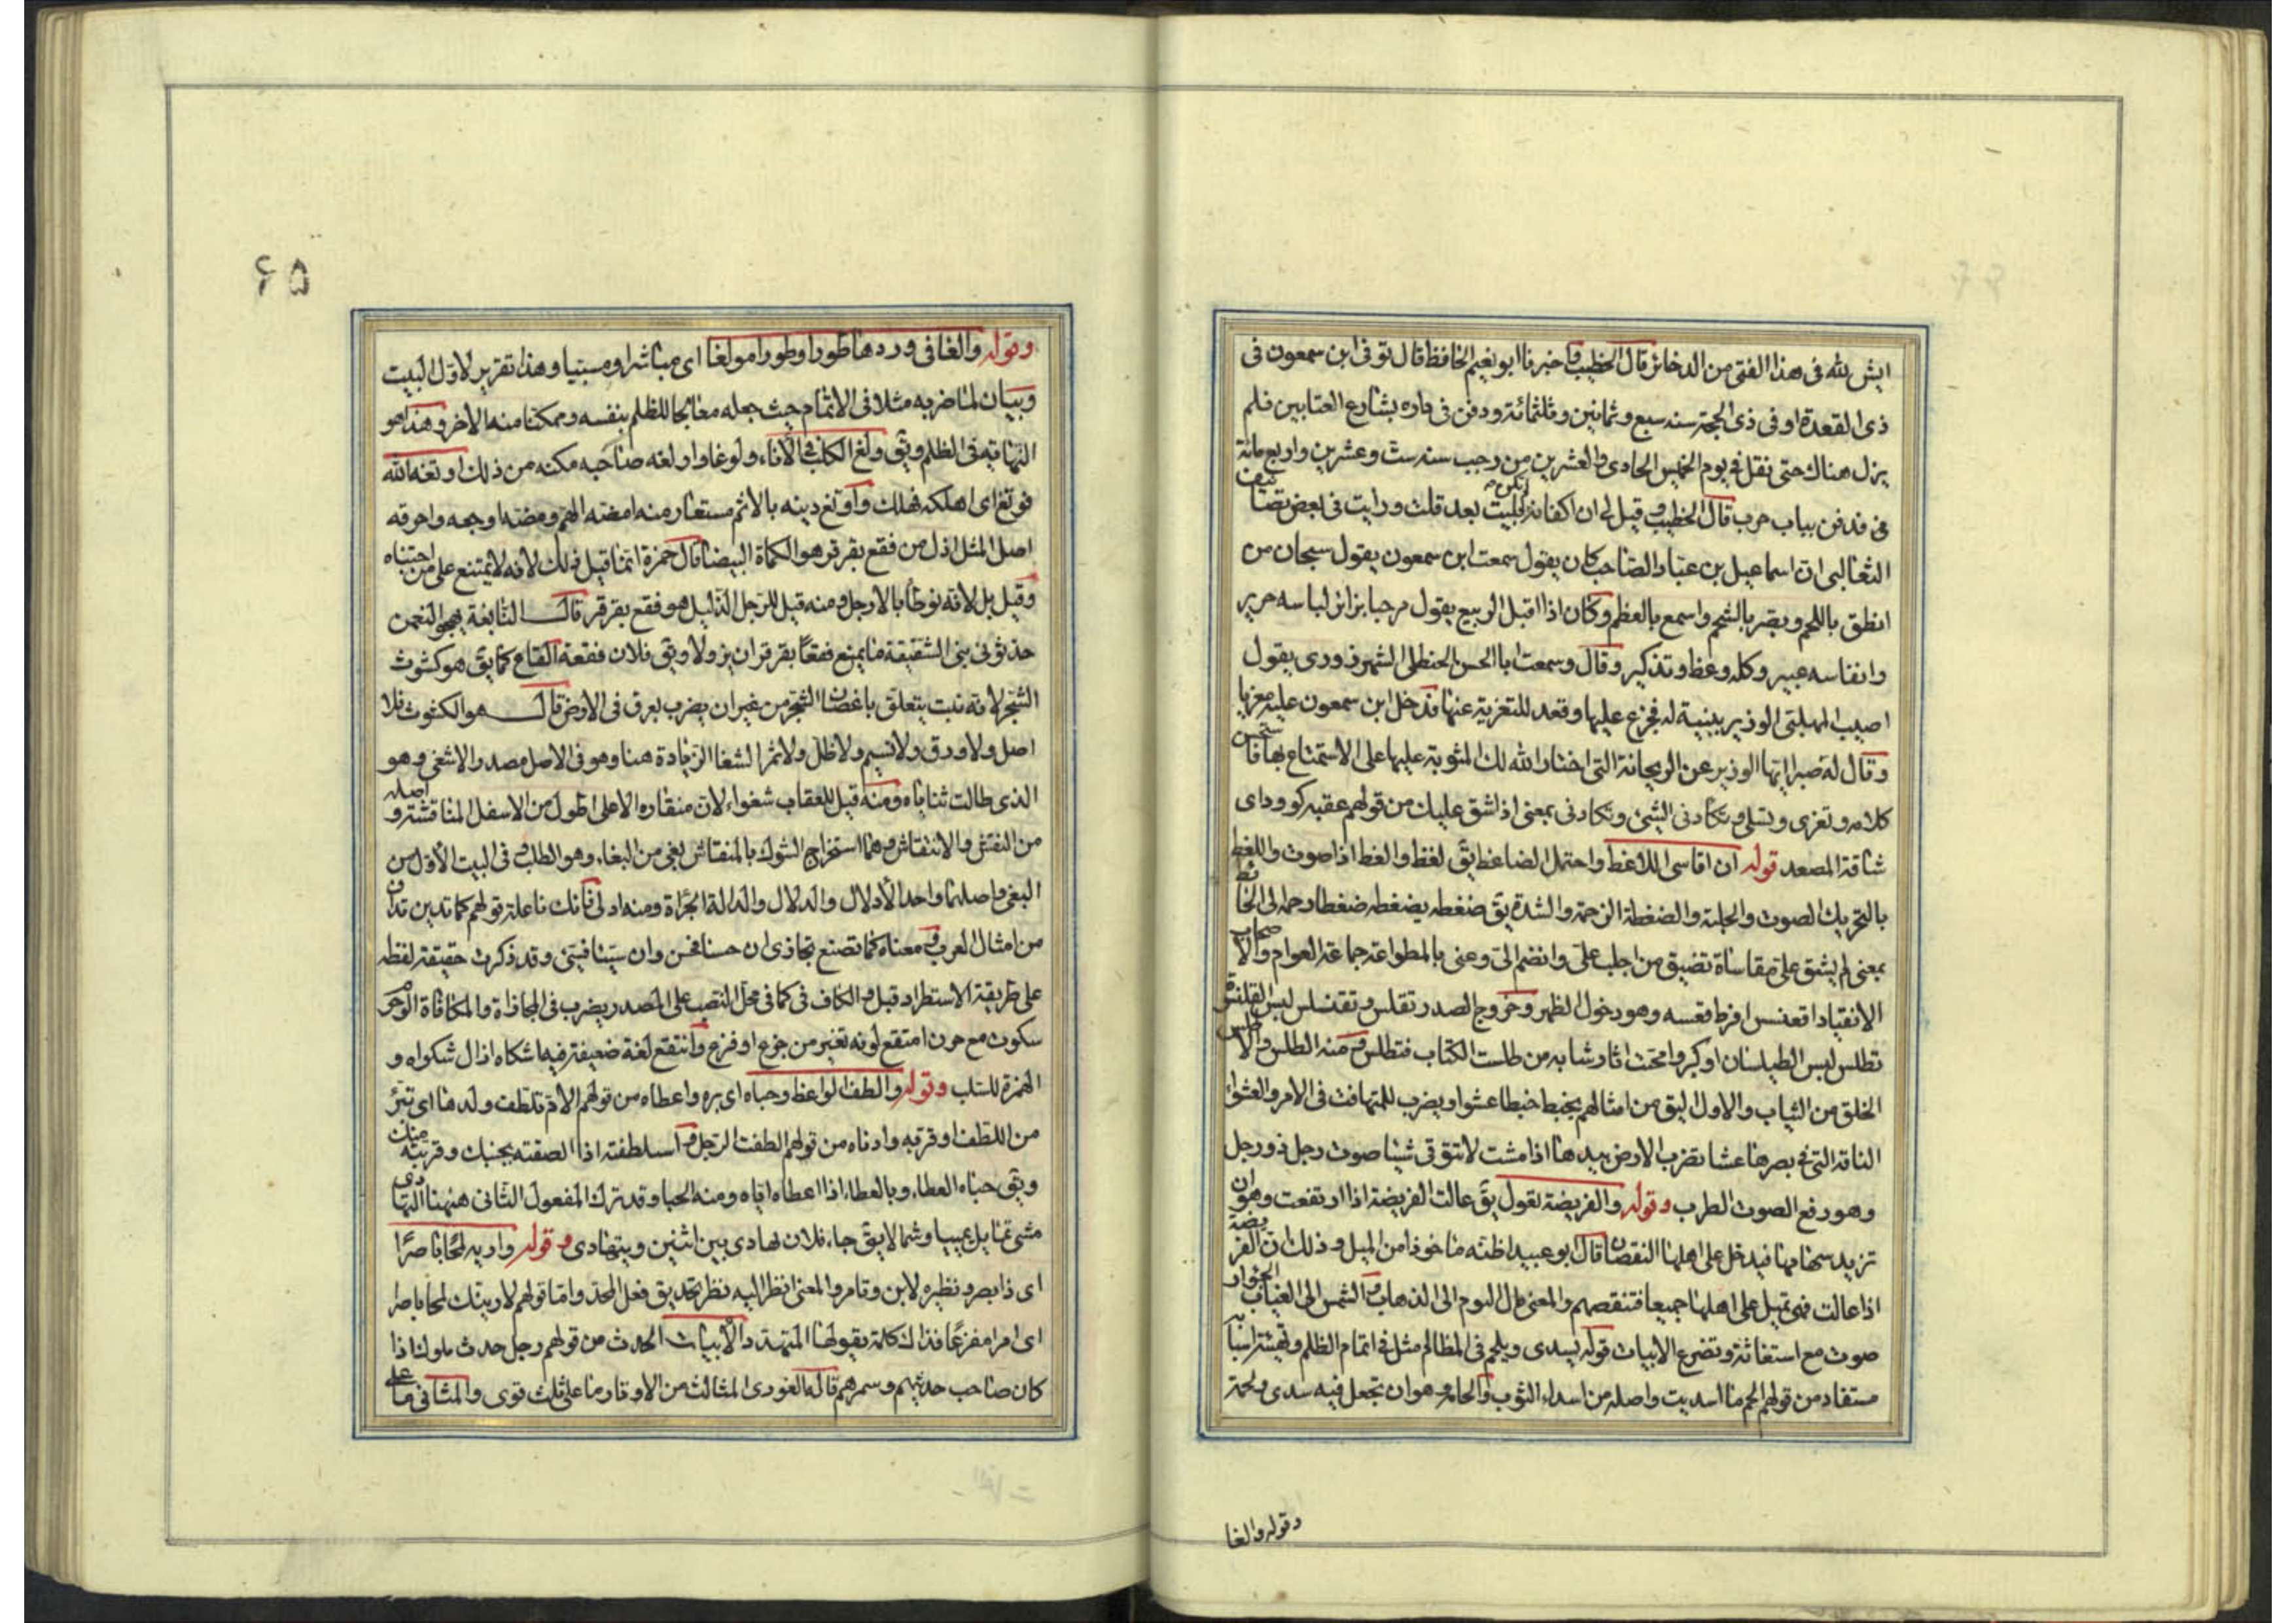 ايش لله فى هذا الفتى من الدخائر قال الخطيب و اخبرنا ابو نعيم الحافظ قال توفى ابن سمعون فى
ذى القعدة او فى ذى الحجة سنه سبع وثمانين وثلثمائة ودفن فى داره بشارع العتابين فلم
يزل هناك حتى نقل فى يوم الخميس الحادى والعشرين من رجب سنه ست وعشرين واربع مائة
فدفن بباب حرب قال الخطيب و قيل لى ان اكفانه لم تكن بليت بعد قلت ورايت فى بعض تصانيف
الثعالبى ان اسماعيل بن عباد الصاحب كان يقول سمعت ابن سمعون يقول سبحان من
انطق باللحم وبصر بالشحم واسمع بالعظم وكان اذا اقبل الربيع يقول مرحبا بزائر لباسه حرير
وانفاسه عبير وكله وعظ وتذكير وقال وسمعت ابا الحسن الحنظلى الشهرزورى يقول
اصيب المهلبى الوزير ببنية له فجزع عليها وقعد للتعزية عنها فدخل ابن سمعون عليه معزيا
وقال له صبرا ايها الوزير عن الريحانة التى اختار الله لك المثوبة عليها على الاستمتاع بها فاستحسن
كلامه وتعزى وتسلى و تكأدنى الشئ وتكادنى بمعنى اذا شق عليك من قولهم عقبه كوود اى
شاقة المصعد قوله ان اقاسى اللاغط واحتمل الضاغط يق لغط والغط اذا صوت واللغط
بالتحريك الصوت والجلبة والضغطة الزحمة والشدة يق ضغطه يضغطه ضغطا زحمه الى الحائط
بمعنى لم يشق على مقاساة تضيق من اجلب على وانضم الى وعنى بالمطواعة جماعة العوام والاصحاب
الانقياد اقعنسس افرط قعسه وهو دخول الظهر وخروج الصدر تقلس وتقنلس لبس القلنسوة
تطلس لبس الطيلسان او كبر وامحت اثار شبابه من طلست الكتاب فتطلس و منه الطلس والاطلس
الخلق من الثياب والاول اليق من امثالهم يخبط خبطا عشوا ويضرب للمتهافت فى الامر والعشواء
الناقة التى فى بصرها عشا تضرب الارض بيدها اذا مشت لا تتوقى شيئا صوت رجل ذو رجل
وهو رفع الصوت الطرب وقوله والفريضة تعول يق عالت الفريضة اذا ارتفعت وهو ان
تزيد سهامها فيدخل على اهلها النقصان قال ابو عبيد اظنه ماخوذا من الميل وذلك ان الفريضة
اذا عالت فهى تميل على اهلها جميعا فتنقصهم والمعنى مال اليوم الى الذهاب و الشمس الى الغياب الخوار
صوت مع استغاثة وتضرع الابيات قوله يسدى ويلحم فى المظالم مثل فى اتمام الظلم وتهيئة اسبابه
مستفاد من قولهم الحم ما اسديت واصله من اسداء الثوب والحامه و هو ان تجعل فيه سدى ولحمة
وقوله والغا
۶۵
وقوله والغا فى وردها طورا وطورا مولغا اى مباشرا ومسببا وهذا تقرير لاول البيت
وبيان لما ضربه مثلا فى الاتمام حيث جعله معالجا للظلم بنفسه وممكنا منه الاخر وهذا هو
النهاية فى الظلم ويق ولغ الكلب فى الاناء ولوغا واولغه صاحبه مكنه من ذلك اوتغه الله
فوتغ اى اهلكه فهلك واوتغ دينه بالاثم مستعار منه امضه الهم ومضه اوجعه واحرقه
اصل المثل اذل من فقع بقرقر هو الكماة البيضا قال حمزة انما قيل ذلك لانه لا يمتنع على من اجتناه
وقيل بل لانه يوطأ بالارجل و منه قيل للرجل الذليل هو فقع بقرقر قال النابغة يهجو النعمن
حدثونى بنى الشقيقة ما يمنع فقعا بقرقر ان يزولا ويق فلان فقعة القاع كما يق هو كشوث
الشجر لانه نبت يتعلق باغصان الشجر من غير ان يضرب بعرق فى الارض قال هو الكشوث فلا
اصل ولا ورق ولا نسيم ولا ظل ولا ثمر الشغا الزيادة هنا وهو فى الاصل مصدر الاشغى وهو
الذى طالت ثناياه ومنه قيل للعقاب شغواء لان منقاره الاعلى اطول من الاسفل المناقشة و اصله
من النقش والانتقاش و هما استخراج الشوك بالمنقاش بغى من البغاء وهو الطلب و فى البيت الاول من
البغى و اصلهما واحد الادلال والدلال والدالة الجراة ومنه ادلى فانك فاعله قولهم كما تدين تدان
من امثال العرب و معناه كما تصنع تجازى ان حسنا فحسن وان سيئا فسيئ وقد ذكرت حقيقة لفظه
على طريقة الاستطراد قبل و الكاف فى كما فى محل النصب على المصدر يضرب فى المجازاة والمكافاة الوجوم
سكوت مع حزن امتقع لونه تغير من جزع او فزع وانتقع لغة ضعيفة فيه اشكاه ازال شكواه و
الهمزة للسلب وقوله والطف الواعظ وحباه اى بره واعطاه من قولهم الام تلطف ولدها اى تبر
من اللطف او قربه وادناه من قولهم الطفت الرجل و استلطفته اذا الصقته بجنبك وقربته منك
ويق حباه العطاء وبالعطاء اذا اعطاه اياه ومنه الحبا وقد ترك المفعول الثانى هيهنا التهادى
مشى تمايل يمينا وشمالا يق جاء فلان يهادى بين اثنين ويتهادى و قوله واريه لمحا باصرا
اى ذا بصر و نظيره لابن وتامر والمعنى انظر اليه نظر تحديق فعل المحد واما قولهم لارينك لمحا باصرا
اى امرا مفزعا فذلك كلمة يقولها المتهدد الابيات الحدث من قولهم رجل حدث ملوك اذا
كان صاحب حديثهم وسمرهم قاله الغورى المثالث من الاوتار ما على ثلث قوى والمثانى ما على